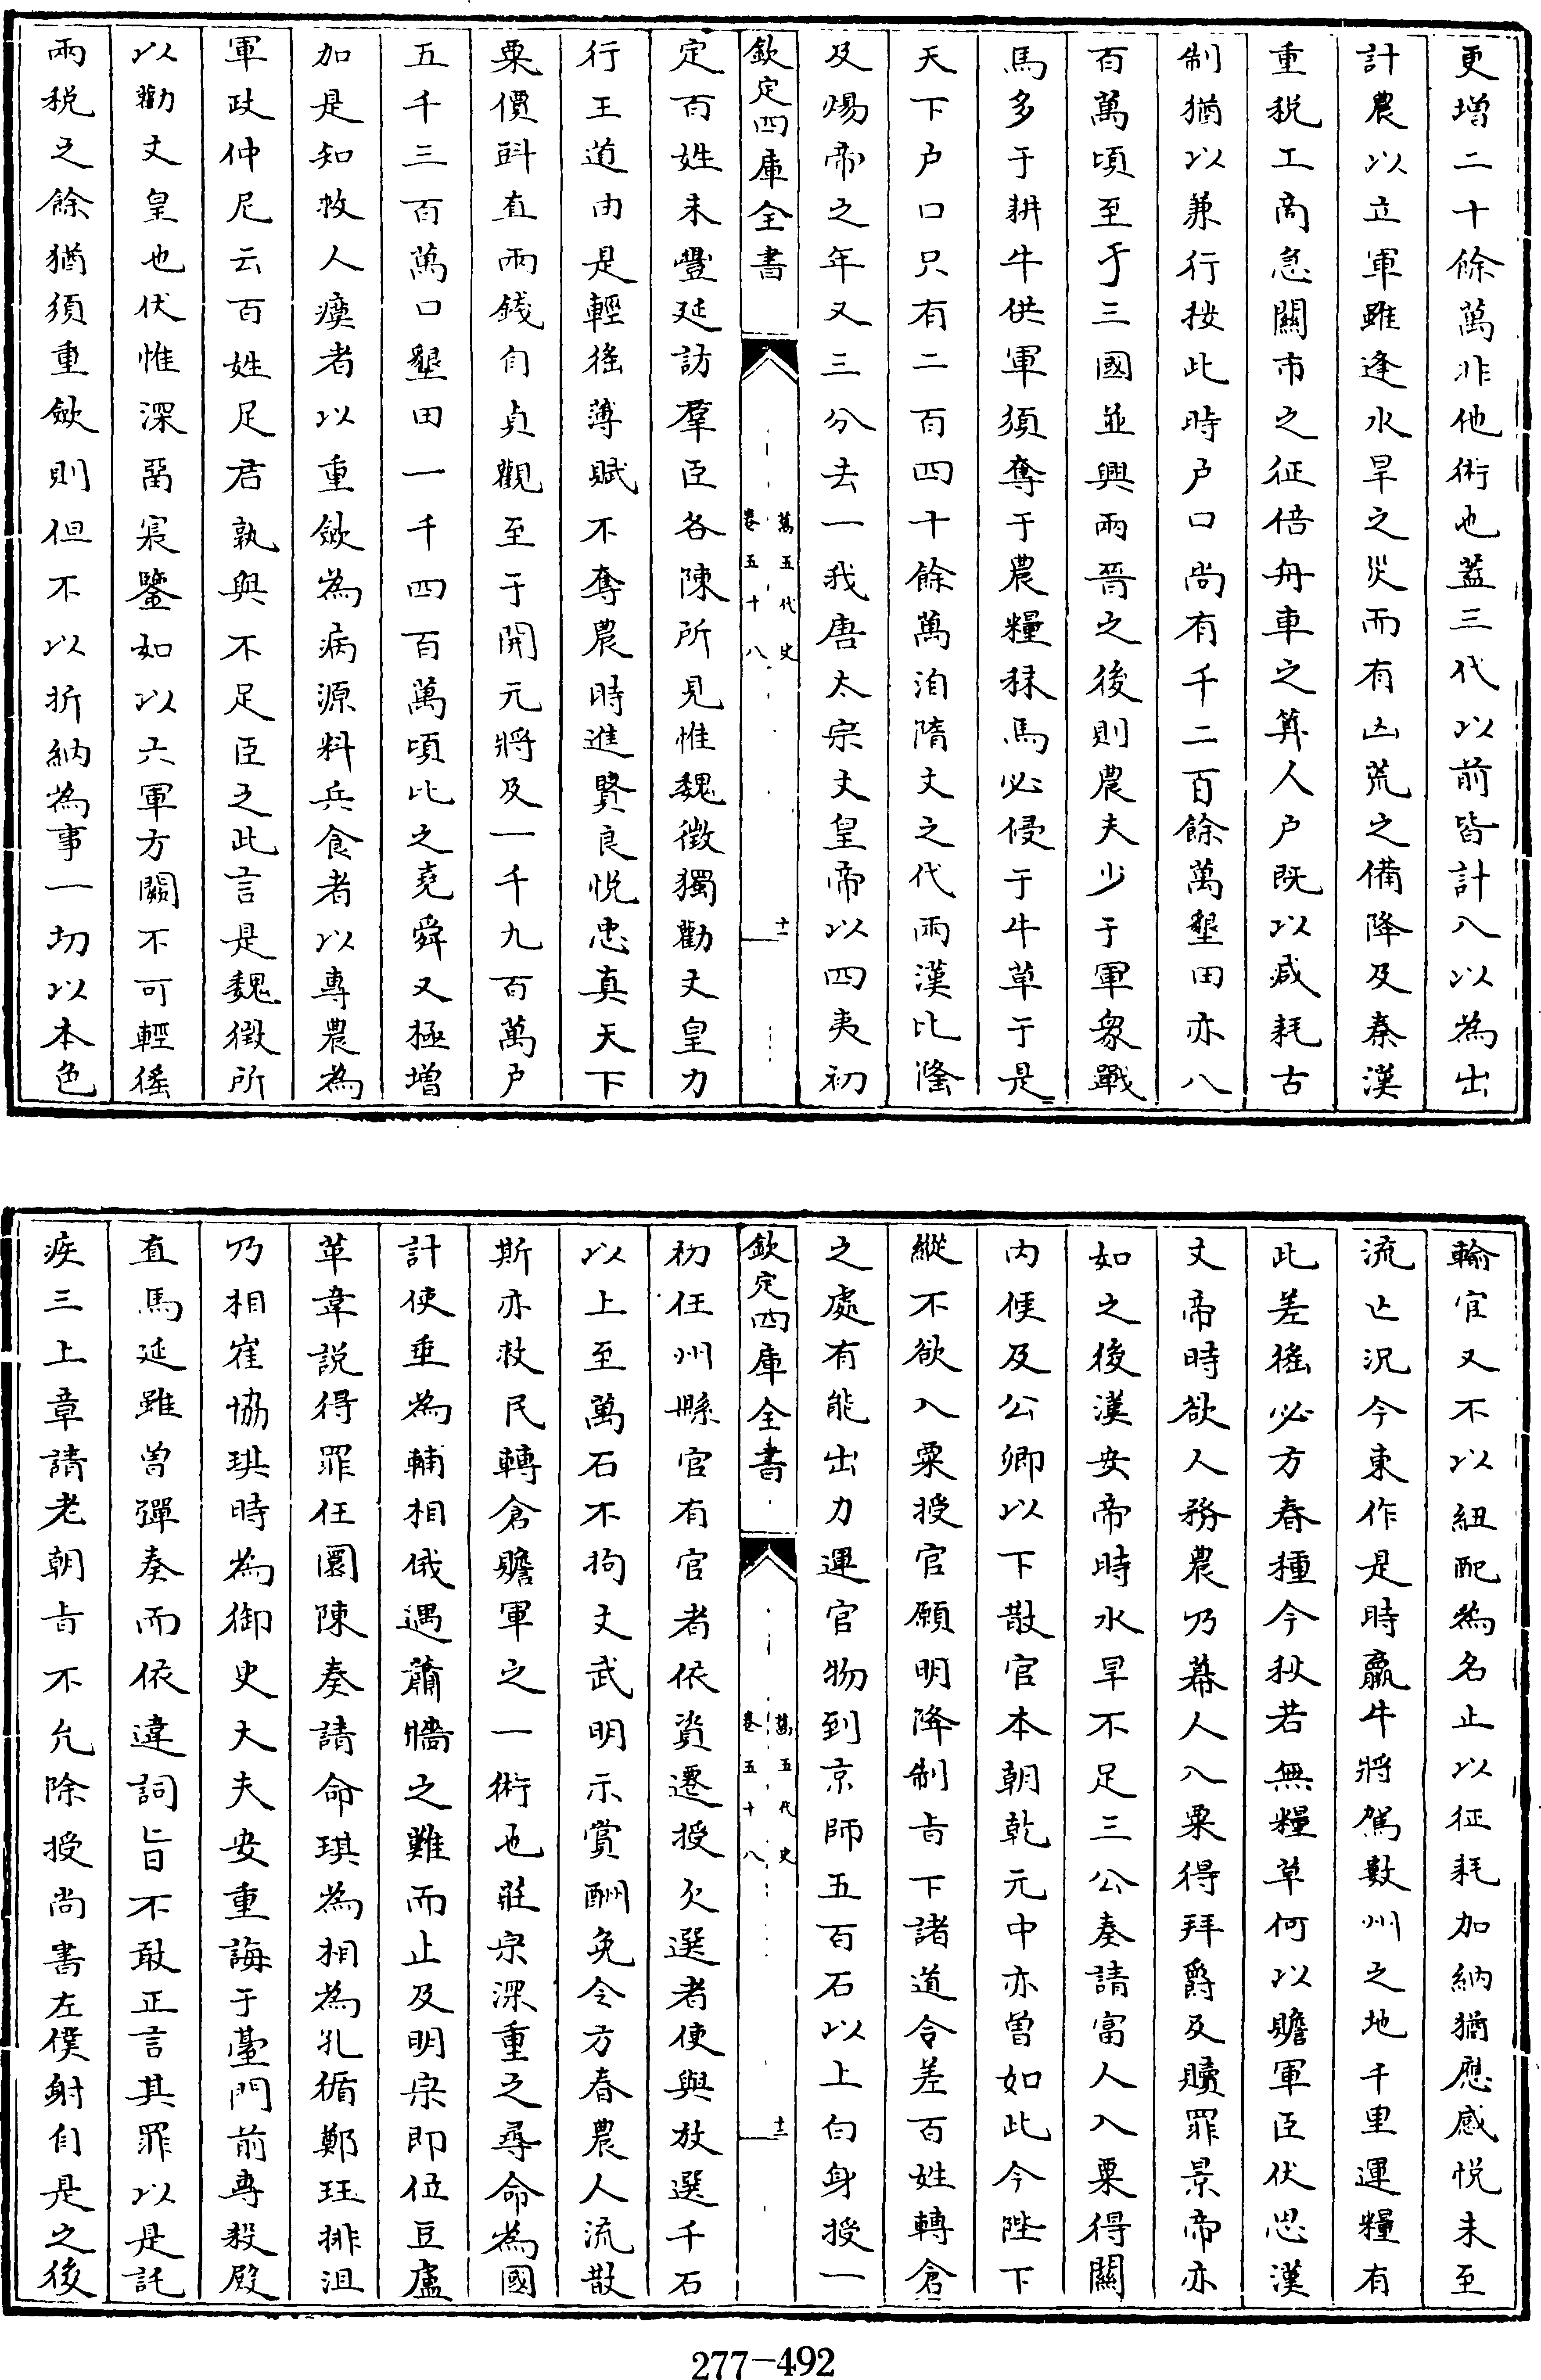 更增二十餘萬非他術也葢三代以前皆計入以為出
計農以立軍雖逢水旱之災而有凶荒之備降及秦漢
重税工商急關市之征倍舟車之算人户既以减耗古
制猶以兼行按此時户口尚有千二百餘萬墾田亦八
百萬頃至于三國並興兩晉之後則農夫少于軍衆戰
馬多于耕牛供軍須奪于農糧秣馬必侵于牛草于是
天下户口只有二百四十餘萬洎隋文之代兩漢比隆
及煬帝之年又三分去一我唐太宗文皇帝以四夷初
欽定四庫全書
舊五代史
卷五十八
十二
定百姓未豐延訪羣臣各陳所見惟魏徵獨勸文皇力
行王道由是輕徭薄賦不奪農時進賢良悦忠真天下
粟價斗直兩錢自貞觀至于開元將及一千九百萬户
五千三百萬口墾田一千四百萬頃比之堯舜又極增
加是知救人瘼者以重斂為病源料兵食者以專農為
軍政仲尼云百姓足君孰與不足臣之此言是魏徵所
以勸文皇也伏惟深㽞宸鑒如以六軍方闕不可輕徭
兩税之餘猶須重斂則但不以折納為事一切以本色
輸官又不以紐配為名止以征耗加納猶應感悦未至
流亡況今東作是時羸牛將駕數州之地千里運糧有
此差徭必方春種今秋若無糧草何以贍軍臣伏思漢
文帝時欲人務農乃募人入粟得拜爵及贖罪景帝亦
如之後漢安帝時水旱不足三公奏請富人入粟得關
内侯及公卿以下散官本朝乾元中亦曾如此今陛下
縱不欲入粟授官願明降制旨下諸道令差百姓轉倉
之處有能出力運官物到京師五百石以上白身授一
欽定四庫全書
舊五代史
卷五十八
十三
初任州縣官有官者依資遷授欠選者便與放選千石
以上至萬石不拘文武明示賞酬免令方春農人流散
斯亦救民轉倉贍軍之一術也莊宗深重之尋命為國
計使垂為輔相俄遇蕭牆之難而止及明宗即位豆盧
革韋説得罪任圜陳奏請命琪為相為孔循鄭珏排沮
乃相崔協琪時為御史大夫安重誨于臺門前專殺殿
直馬延雖曾彈奏而依違詞旨不敢正言其罪以是託
疾三上章請老朝旨不允除授尚書左僕射自是之後
277-492